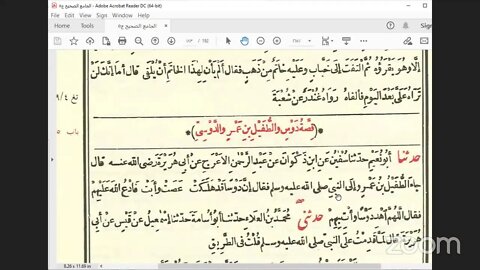 الجامع الصحيح ج٥ - Adobe Acrobat Reader DC (64-bit)
File Edit View Sign Window Help
Home Tools الجامع الصحيح ج٥
Sign In
إلا وهو يقرؤه ثم التفت إلى خباب وعليه خاتم من ذهب فقال ألم يأن لهذا الخاتم أن يلقى قال أما إنك لن
تراه علي بعد اليوم فألقاه رواه غندر عن شعبة
نغ ٩/٤
قصة دوس والطفيل بن عمرو الدوسي
باب
حدثنا أبو نعيم حدثنا سفين عن ابن ذكوان عن عبد الرحمن الأعرج عن أبي هريرة رضى الله عنه قال
جاء الطفيل بن عمرو إلى النبي صلى الله عليه وسلم فقال إن دوسا قد هلكت عصت وأبت فادع الله عليهم
فقال اللهم اهد دوسا وأت بهم حدثني محمد بن العلاء حدثنا أبو أسامة حدثنا إسمعيل عن قيس عن أبي
هريرة قال لما قدمت على النبي صلى الله عليه وسلم قلت في الطريق
8.26 x 11.69 in
zoom